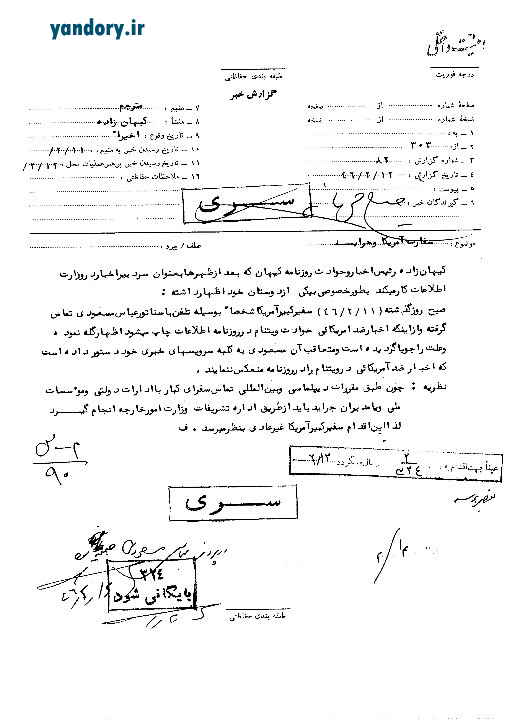 yandory.ir
درجه فوریت
طبقه بندی حفاظتی
گزارش خبر
صفحهٔ شماره از صفحه
نسخهٔ شماره از نسخه
۱ – به :
۲ – از : ۳۰۳
۳ – شماره گزارش : ۸۲
۴ – تاریخ گزارش : ۴۶/۲/۱۲
۵ – پیوست :
۶ – گیرندگان خبر :
۷ – منبع : مترجم
۸ – منشأ : کیهان زاده
۹ – تاریخ وقوع : اخیراً
۱۰ – تاریخ رسیدن خبر به منبع :
۱۱ – تاریخ رسیدن خبر برهبر عملیات محل :
۱۲ – ملاحظات حفاظتی :
سری
موضوع : سفارت آمریکا و جراید
کیهان زاده رئیس اخبار و حوادث روزنامه کیهان که بعد از ظهرها بعنوان سردبیر اخبار در وزارت
اطلاعات کار میکند بطور خصوصی بیکی از دوستان خود اظهار داشته :
صبح روز گذشته (۴۶/۲/۱۱) سفیرکبیر آمریکا شخصاً بوسیله تلفن با سناتور عباس مسعودی تماس
گرفته و از اینکه اخبار ضد آمریکائی حوادث ویتنام در روزنامه اطلاعات چاپ میشود اظهار گله نموده
و علت را جویا گردیده است و متعاقب آن مسعودی به کلیه سرویسهای خبری خود دستور داده است
که اخبار ضد آمریکائی در ویتنام را در روزنامه منعکس ننمایند .
نظریه : چون طبق مقررات دیپلماسی و بین‌المللی تماس سفرای کبار با ادارات دولتی و موسسات
ملی و یا مدیران جراید باید از طریق اداره تشریفات وزارت امور خارجه انجام گیرد
لذا این اقدام سفیرکبیر آمریکا غیرعادی بنظر میرسد . ف
سری
۳۲۴
بایگانی شود
طبقه بندی حفاظتی